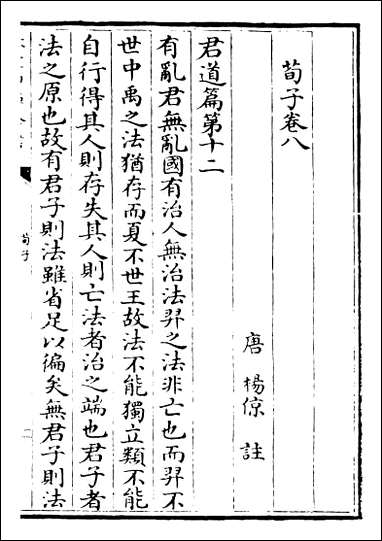 荀子卷八
唐 楊倞 註
君道篇第十二
有亂君無亂國有治人無治法羿之法非亡也而羿不
世中禹之法猶存而夏不世王故法不能獨立類不能
自行得其人則存失其人則亡法者治之端也君子者
法之原也故有君子則法雖省足以徧矣無君子則法
荀子